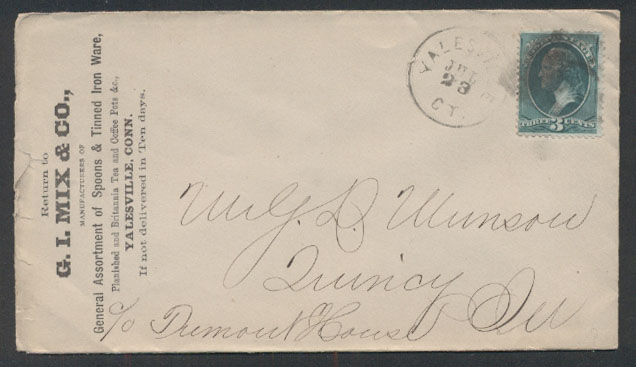 Return to
G. I. MIX & CO.,
MANUFACTURERS OF
General Assortment of Spoons & Tinned Iron Ware,
Planished and Britannia Tea and Coffee Pots &c.,
YALESVILLE, CONN.
If not delivered in Ten days.
YALESVI
23
CT.
THREE 3 CENTS
Mr G. D. Munson
Quincy
c/o Dumont House Ill